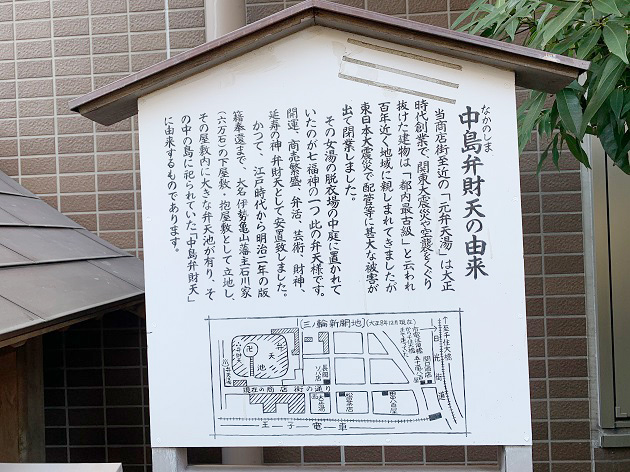 なかのしま
中島弁財天の由来
当商店街至近の「元弁天湯」は大正
時代創業で、関東大震災や空襲をくぐり
抜けた建物は「都内最古級」と云われ
百年近く地域に親しまれてきましたが
東日本大震災で配管等に甚大な被害が
出て閉業しました。
その女湯の脱衣場の中庭に置かれて
いたのが七福神の一つ此の弁天様です。
開運、商売繁盛、弁活、芸術、財神、
延寿の神 弁財天として安置致しました。
かつて、江戸時代から明治二年の版
籍奉還まで、大名 伊勢亀山藩主石川家
(六万石)の下屋敷、抱屋敷として立地し、
その屋敷内に大きな弁天池が有り、そ
の中の島に祀られていた「中島弁財天」
に由来するものであります。
(三ノ輪新開地)
(大正8年12月現在)
至千住大橋
日光街道
弁天池
卍
現在の商店街の通り
王子電車